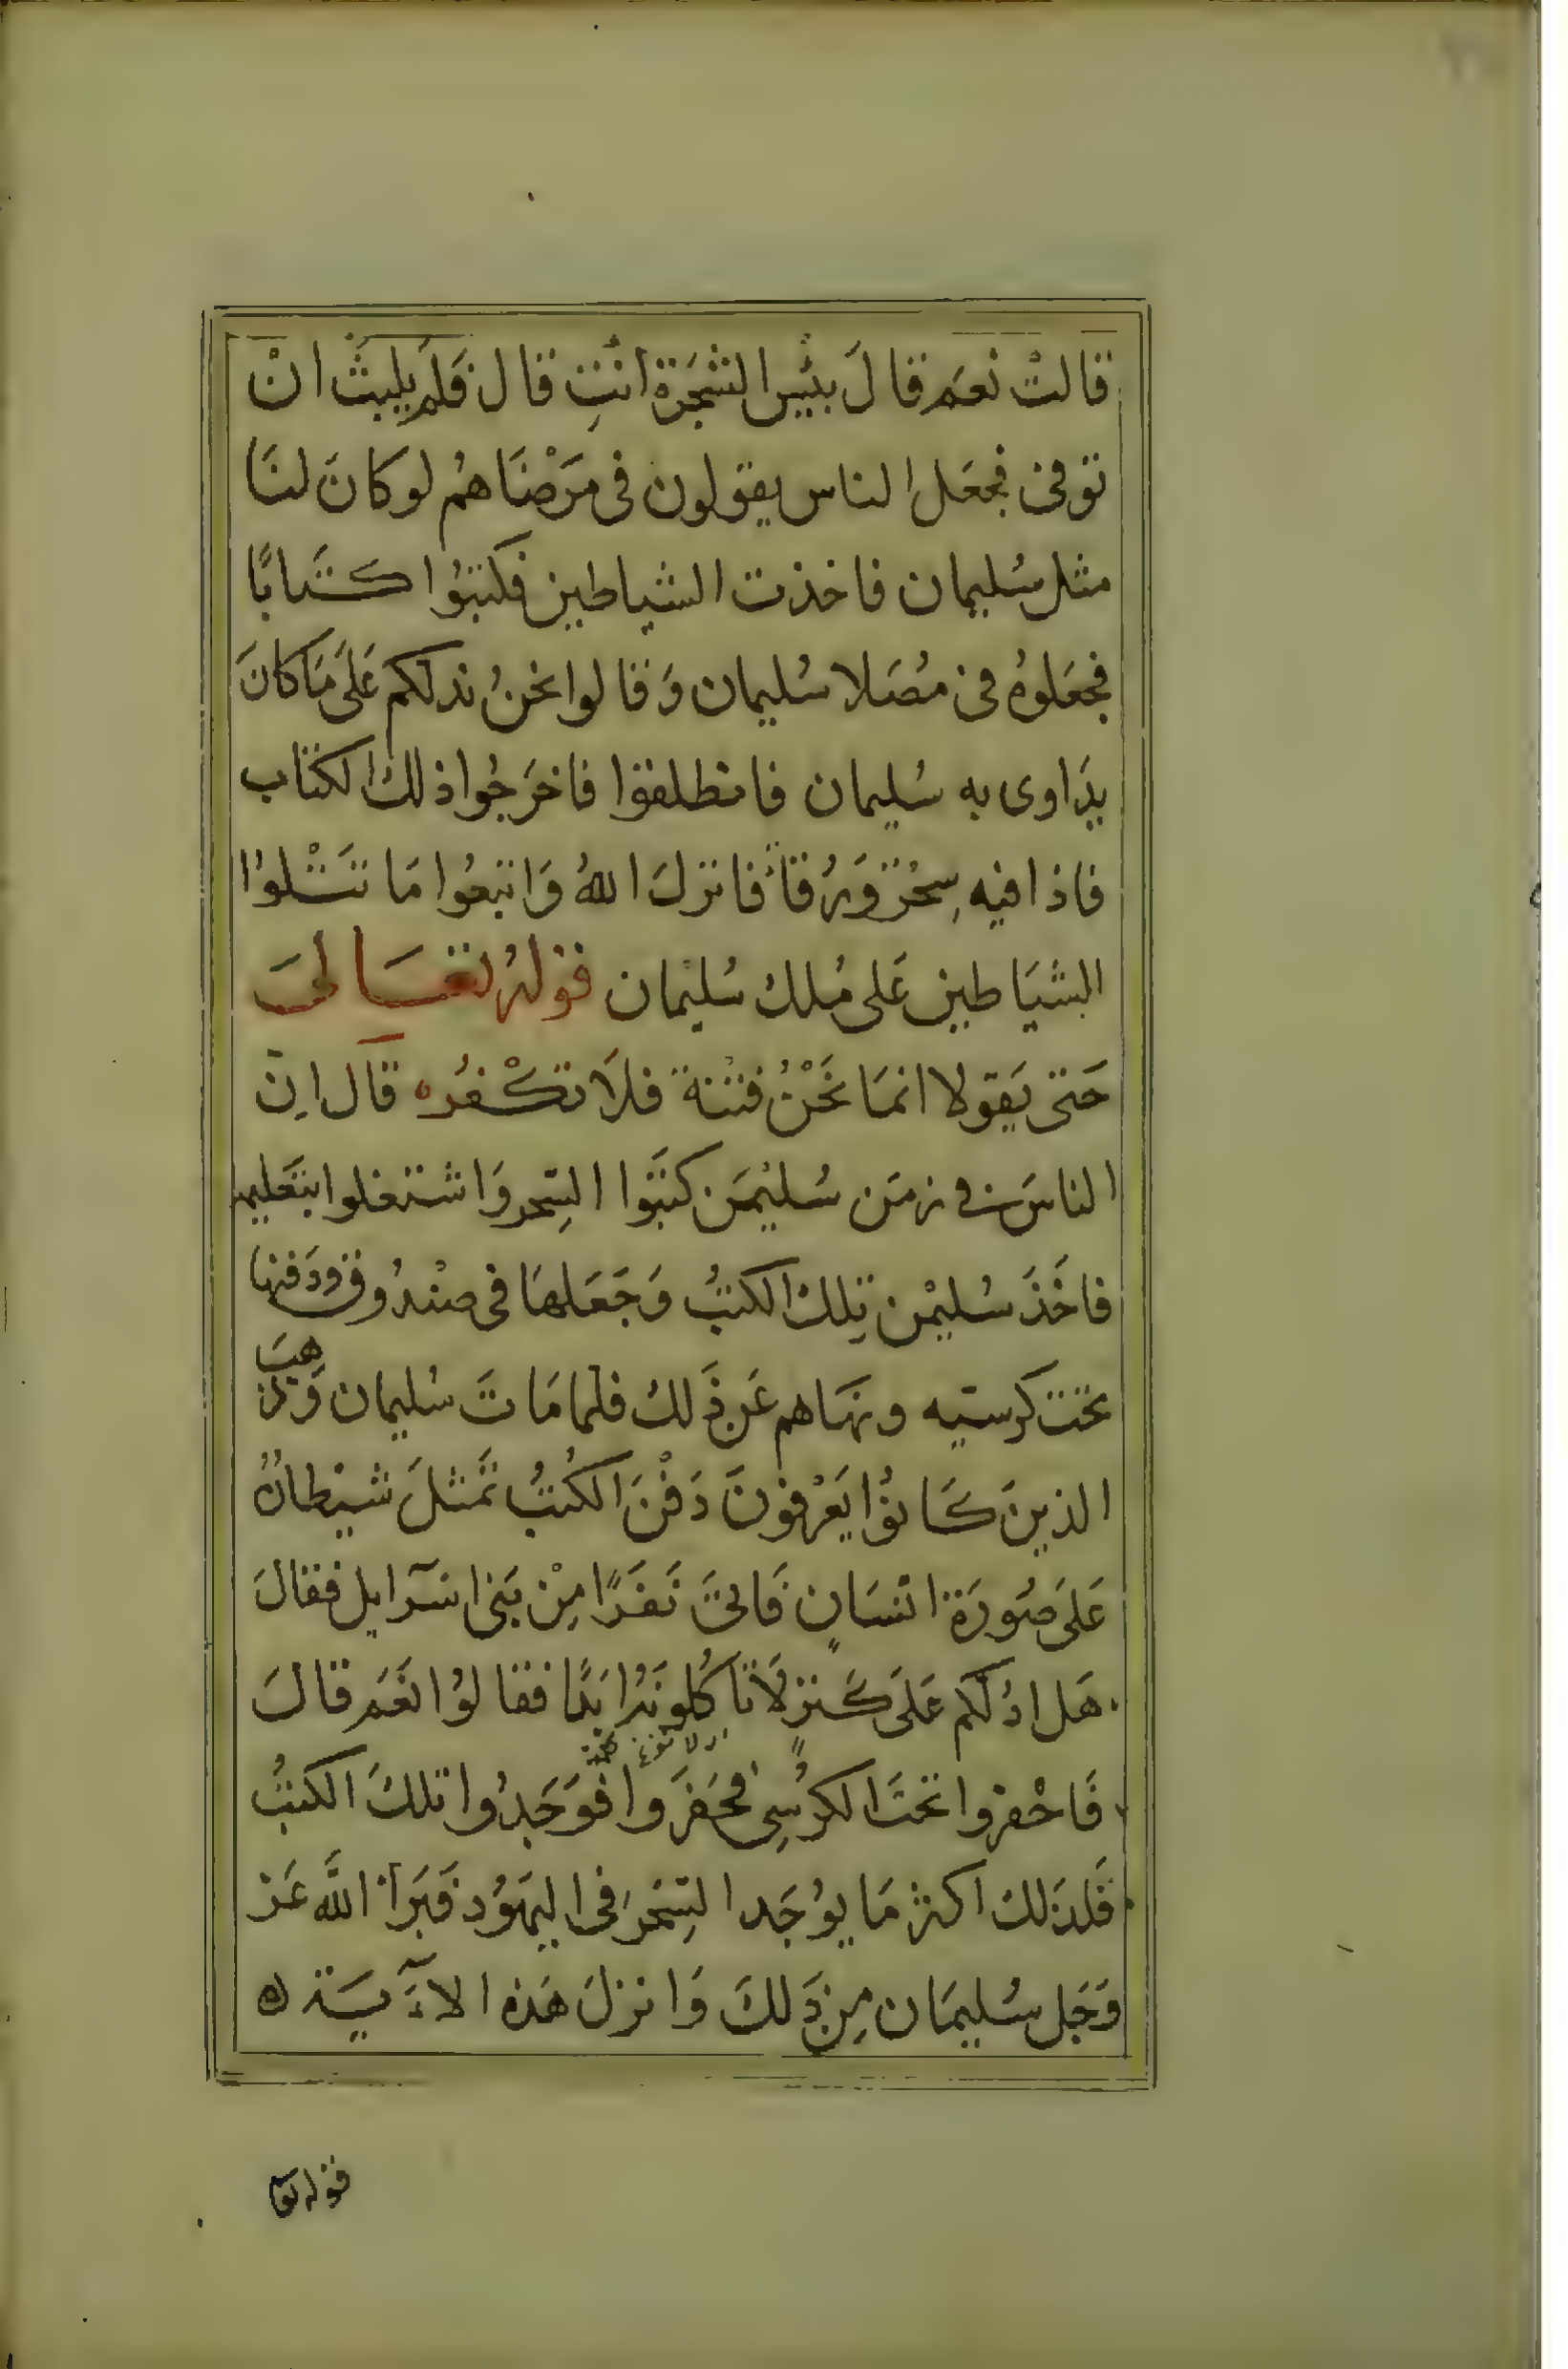 قالتْ نعَم قالَ بئيس الشجَرة انتِ قال فَلم يلبثْ انْ
توفى فجعَل الناس يقولون فى مَرْضنَاهُم لو كانَ لنَا
مثل سُليمان فاخذت الشياطين فكتبُوا كتَابًا
فجعَلوهُ فى مصَلا سُليمان وَقالوا نحنُ ندلكم عَلَى مَا كانَ
يدَاوى به سُليمان فانطلقوا فاخرَجُوا ذلك الكتاب
فاذا فيه سِحْرٌ وَرُقاً فانزلَ اللهُ وَاتبعُوا مَا تتْلوُا
الشيَاطين عَلى مُلك سُليمان قولهُ تعَالىَ
حَتى يَقولا انمَا نَحْنُ فتنة فلاَ تكْفُره قال اِنّ
الناسَ فى زمَن سُليْمَن كتبَوا السِحر وَاشتغلوا بتَعليم
فاخَذَ سُليمْن تِلك الكتبُ وَجَعَلهَا فى صنْدُوق ودَفنها
تحت كرسيّه ونهَاهم عَن ذَلك فلما مَاتَ سُليمان وَذهبَ
الذينَ كَانوُا يَعْرفونَ دَفْنَ الكُتبُ تمَثلَ شيْطانٌ
عَلَى صُورَة انْسَانٍ فَاتىَ نَفَرًا مِنْ بَنى اسرَآيل فقالَ
هَل ادُلكم عَلَى كَنزٍ لاَ تاكُلونَهُ ابَدًا فقالوُا نَعَم قالَ
فَاحْفروا تحتَ الكرُسِى فحَفَرَوا فوَجَدُوا تلكَ الكتبُ
فَلذَلك اكثر مَا يوُجَد السِحْرَ فى اليهَوُد فَبَرأ اللَّه عَز
وَجَل سُليمَان مِن ذَلكَ وَانزلَ هَذه الآيَة ه
قوله تعا